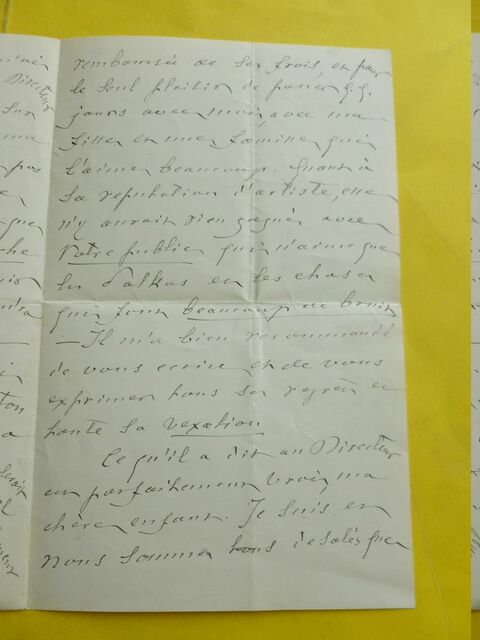 remboursée de ses frais, et pour
le seul plaisir de passer q.q.
jours avec moi avec ma
fille et une famille qui
l'aime beaucoup. Quant à
sa reputation d'artiste, elle
n'y aurait rien gagné avec
votre public qui n'aime que
les Polkas et les choses
qui font beaucoup de bruit
— Il m'a bien recommandé
de vous ecrire et de vous
exprimer tous ses regrets et
toute sa vexation
Ce qu'il a dit au Directeur
est parfaitement vrai, ma
chère enfant. Je suis, et
nous sommes tous desolés que
Directeur
sur
ma
pas